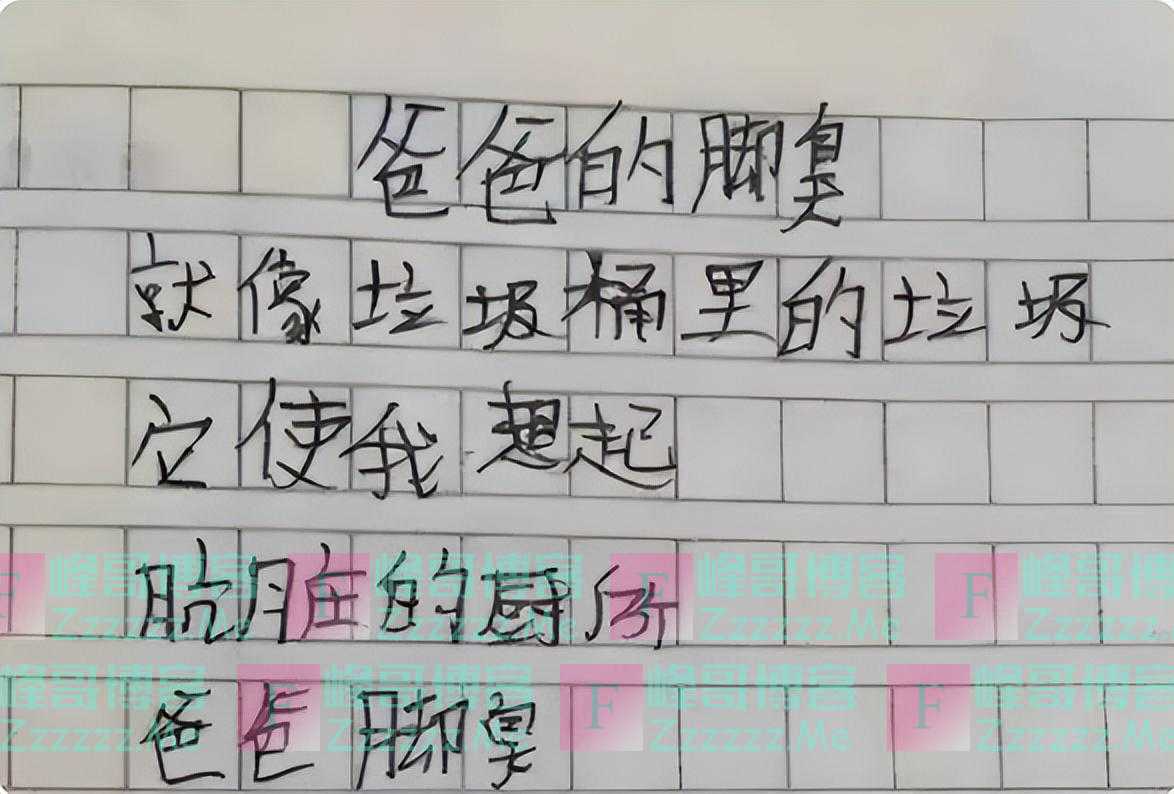 爸爸的脚臭
就像垃圾桶里的垃圾
它使我想起
肮脏的厨所
峰哥博客 峰哥博客 峰哥博客 峰哥博
Zzzzzz.Me Zzzzzz.Me Zzzzzz.Me Zzzzzz.
爸爸脚臭
峰哥博客 峰哥博客 峰哥博客 峰哥博客
Zzzzzz.Me Zzzzzz.Me Zzzzzz.Me Zzzzzz.Me